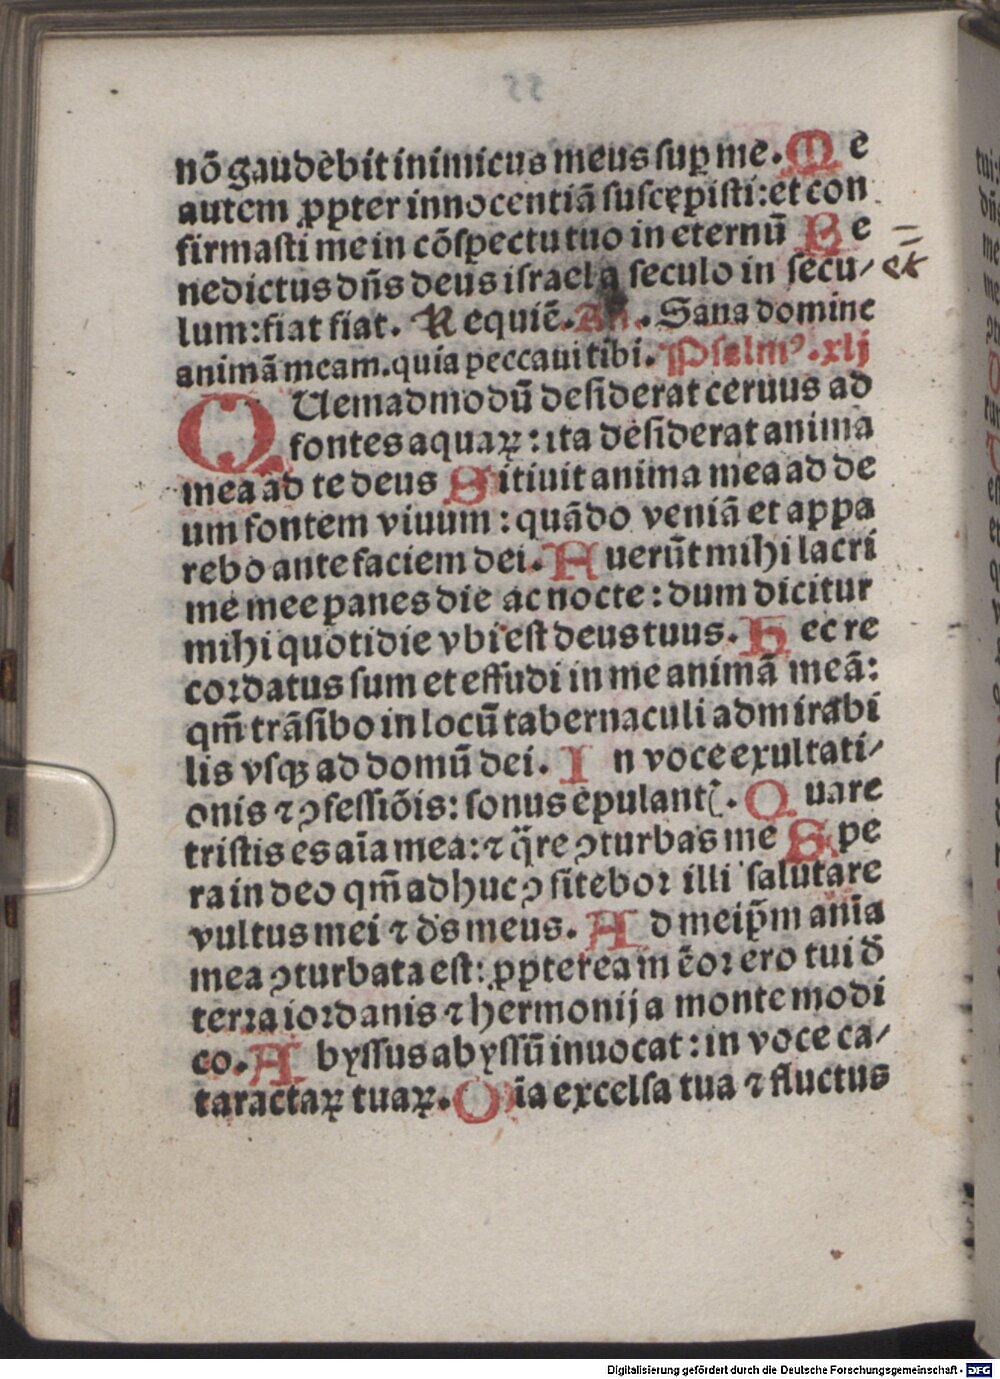 nō gaudebit inimicus meus suꝑ me. Me
autem ꝓpter innocentiā suscepisti: et con
firmasti me in cōspectu tuo in eternū Be
nedictus dn̄s deus israel a seculo in secu/
lum: fiat fiat. Requiē. An. Sana domine
animā meam. quia peccaui tibi. Psalmꝰ. xlj
QUemadmodū desiderat ceruus ad
fontes aquaꝝ: ita desiderat anima
mea ad te deus Sitiuit anima mea ad de
um fontem viuum: quādo veniā et appa
rebo ante faciem dei. Fuerūt mihi lacri
me mee panes die ac nocte: dum dicitur
mihi quotidie vbi est deus tuus. Hec re
cordatus sum et effudi in me animā meā:
qm̄ trāsibo in locū tabernaculi admirabi
lis vsqꝫ ad domū dei. In voce exultati/
onis ⁊ ꝯfessiōis: sonus epulantꝭ. Quare
tristis es aīa mea: ⁊ q̄re ꝯturbas me Spe
ra in deo qm̄ adhuc ꝯfitebor illi salutare
vultus mei ⁊ ds̄ meus. Ad meip̄m anīa
mea ꝯturbata est: ꝓpterea mēor ero tui d̄
terra iordanis ⁊ hermonij a monte modi
co. Abyssus abyssū inuocat: in voce ca/
taractaꝝ tuaꝝ. Oīa excelsa tua ⁊ fluctus
Digitalisierung gefördert durch die Deutsche Forschungsgemeinschaft - DFG